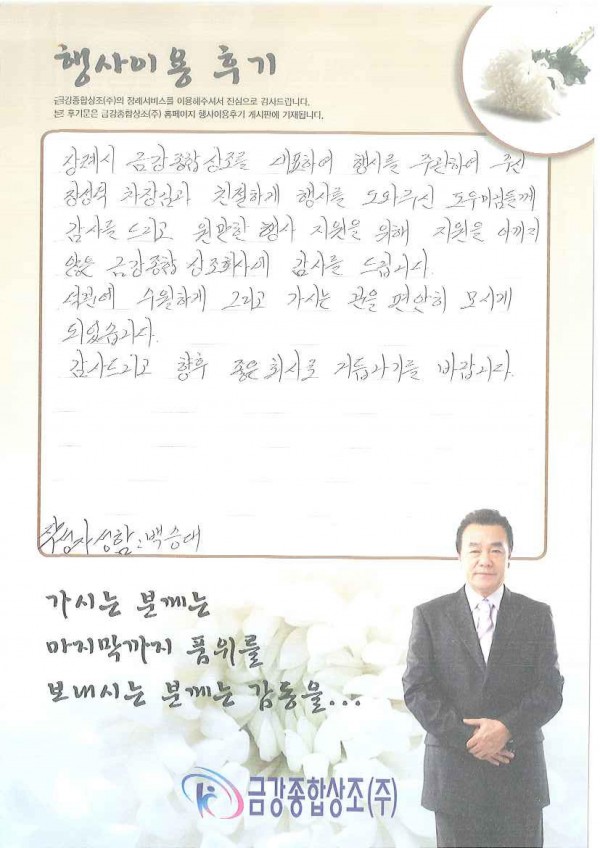 행사이용 후기
금강종합상조(주)의 장례서비스를 이용해주셔서 진심으로 감사드립니다.
본 후기문은 금강종합상조(주) 홈페이지 행사이용후기 게시판에 기재됩니다.
장례시 금강종합상조를 대표하여 행사를 주관하여 주신
장성덕 차장님과 친절하게 행사를 도와주신 도우미님들께
감사를 드리고 원활한 행사 지원을 위해 지원을 아끼지
않은 금강종합상조회사에 감사를 드립니다.
덕분에 수월하게 그리고 가시는 분을 편안히 모시게
되었습니다.
감사드리고 향후 좋은 회사로 거듭나기를 바랍니다.
작성자 성함 : 백승대
가시는 분께는
마지막까지 품위를
보내시는 분께는 감동을...
금강종합상조(주)